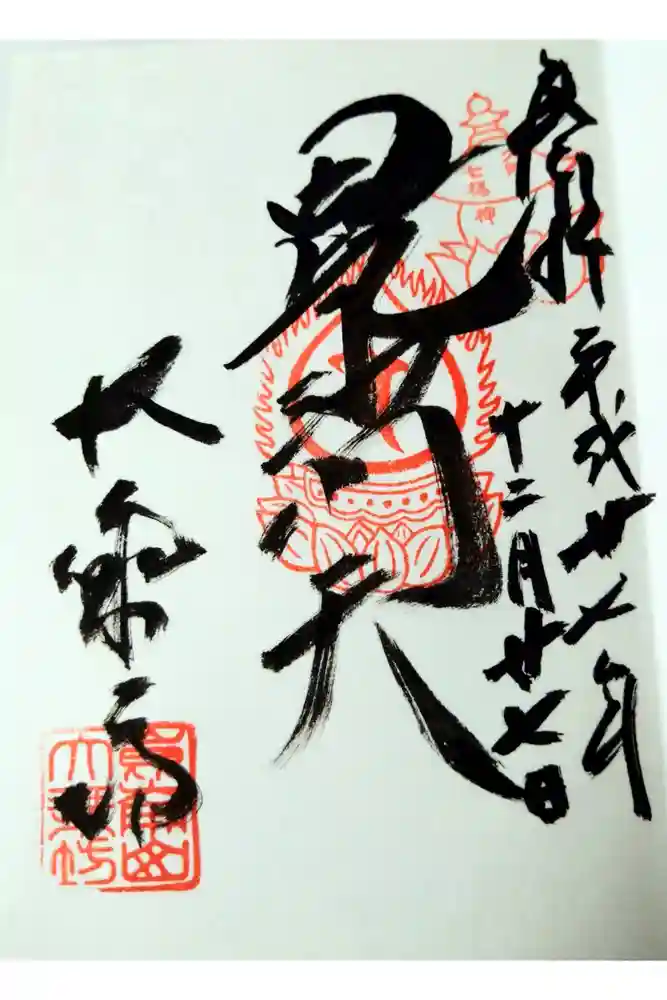 奉拝
平成廿七年
十二月廿七日
毘沙門天
大乗坊
七福神
大乗坊